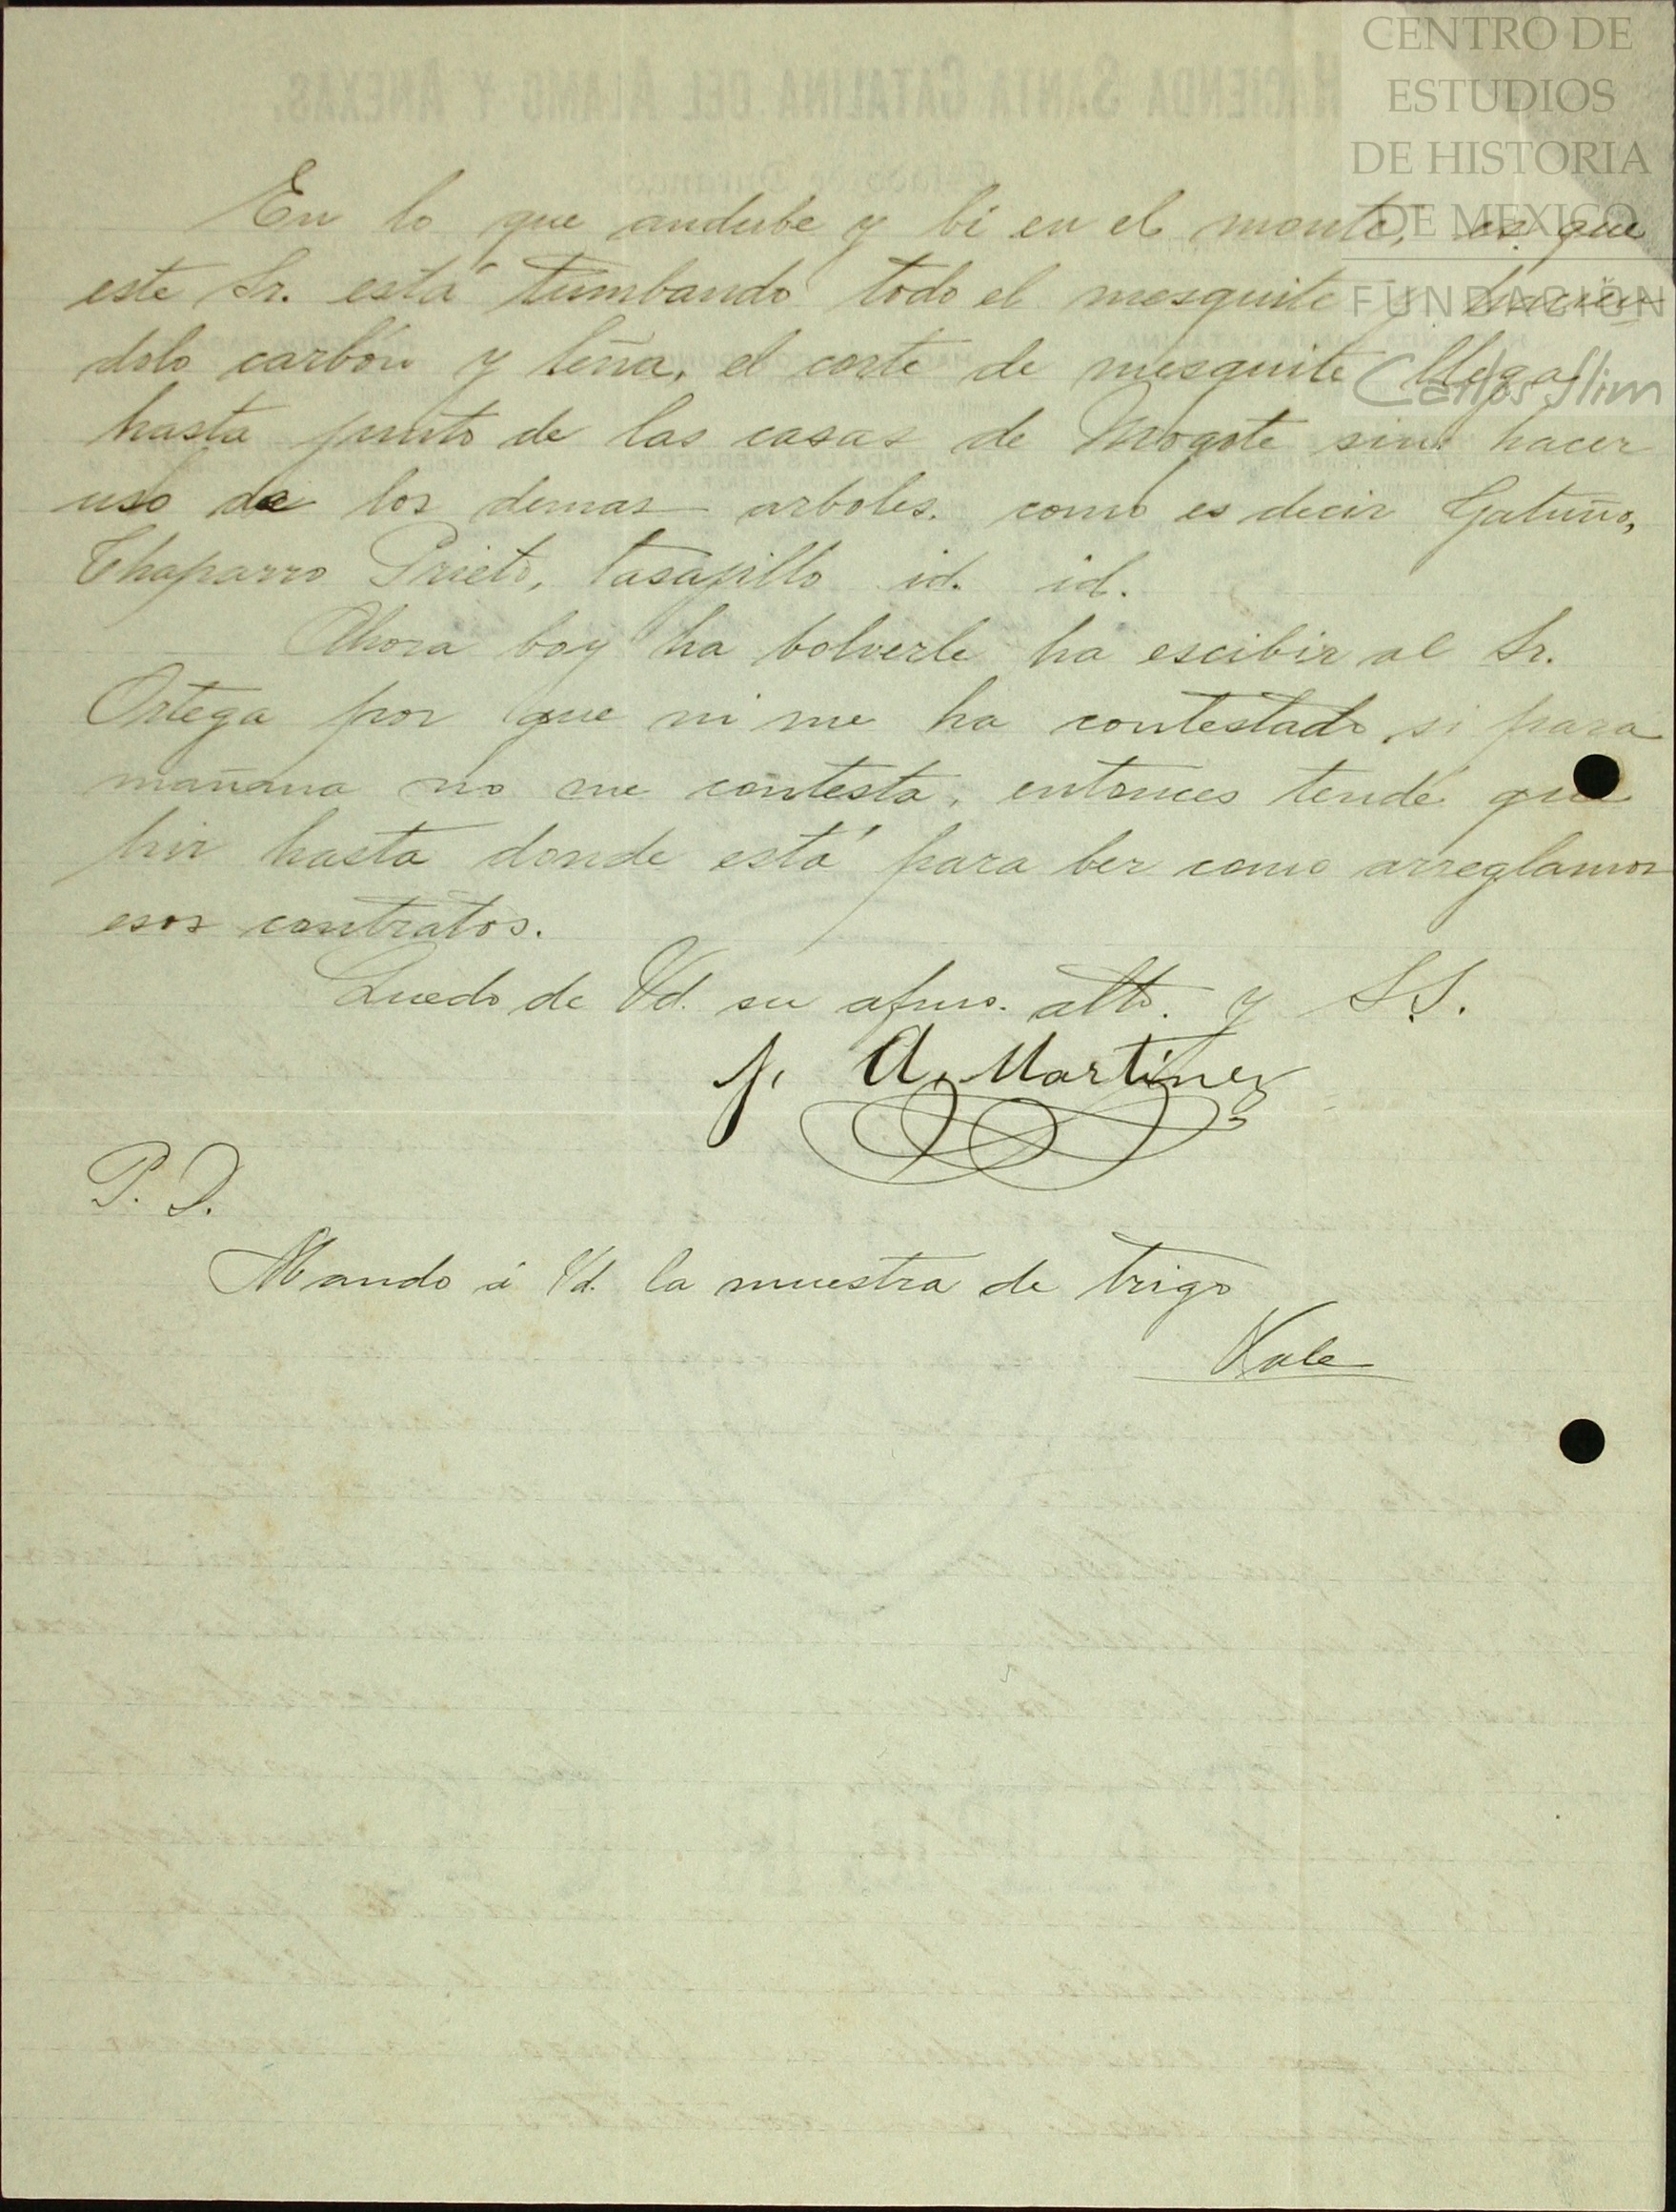 CENTRO DE
ESTUDIOS
DE HISTORIA
DE MEXICO
FUNDACIÓN
Carlos Slim
HACIENDA SANTA CATALINA DEL ALAMO Y ANEXAS.
Estado de Durango
En lo que andube y bi en el monte, es que
este Sr. está tumbando todo el mesquite y hacien-
dolo carbón y leña, el corte de mesquite llega
hasta junto de las casas de Mogote sin hacer
uso de los demas arboles. como es decir Gatuño,
Chaparro Prieto, tasajillo id. id.
Ahora boy ha bolverle ha escibir al Sr.
Ortega por que ni me ha contestado, si para
mañana no me contesta, entonces tendé que
hir hasta donde está para ber como arreglamos
esos contratos.
Quedo de Vd. su afmo. atto. y S.S.
J. A. Martinez
P. D.
Mando á Vd. la muestra de trigo
Vale